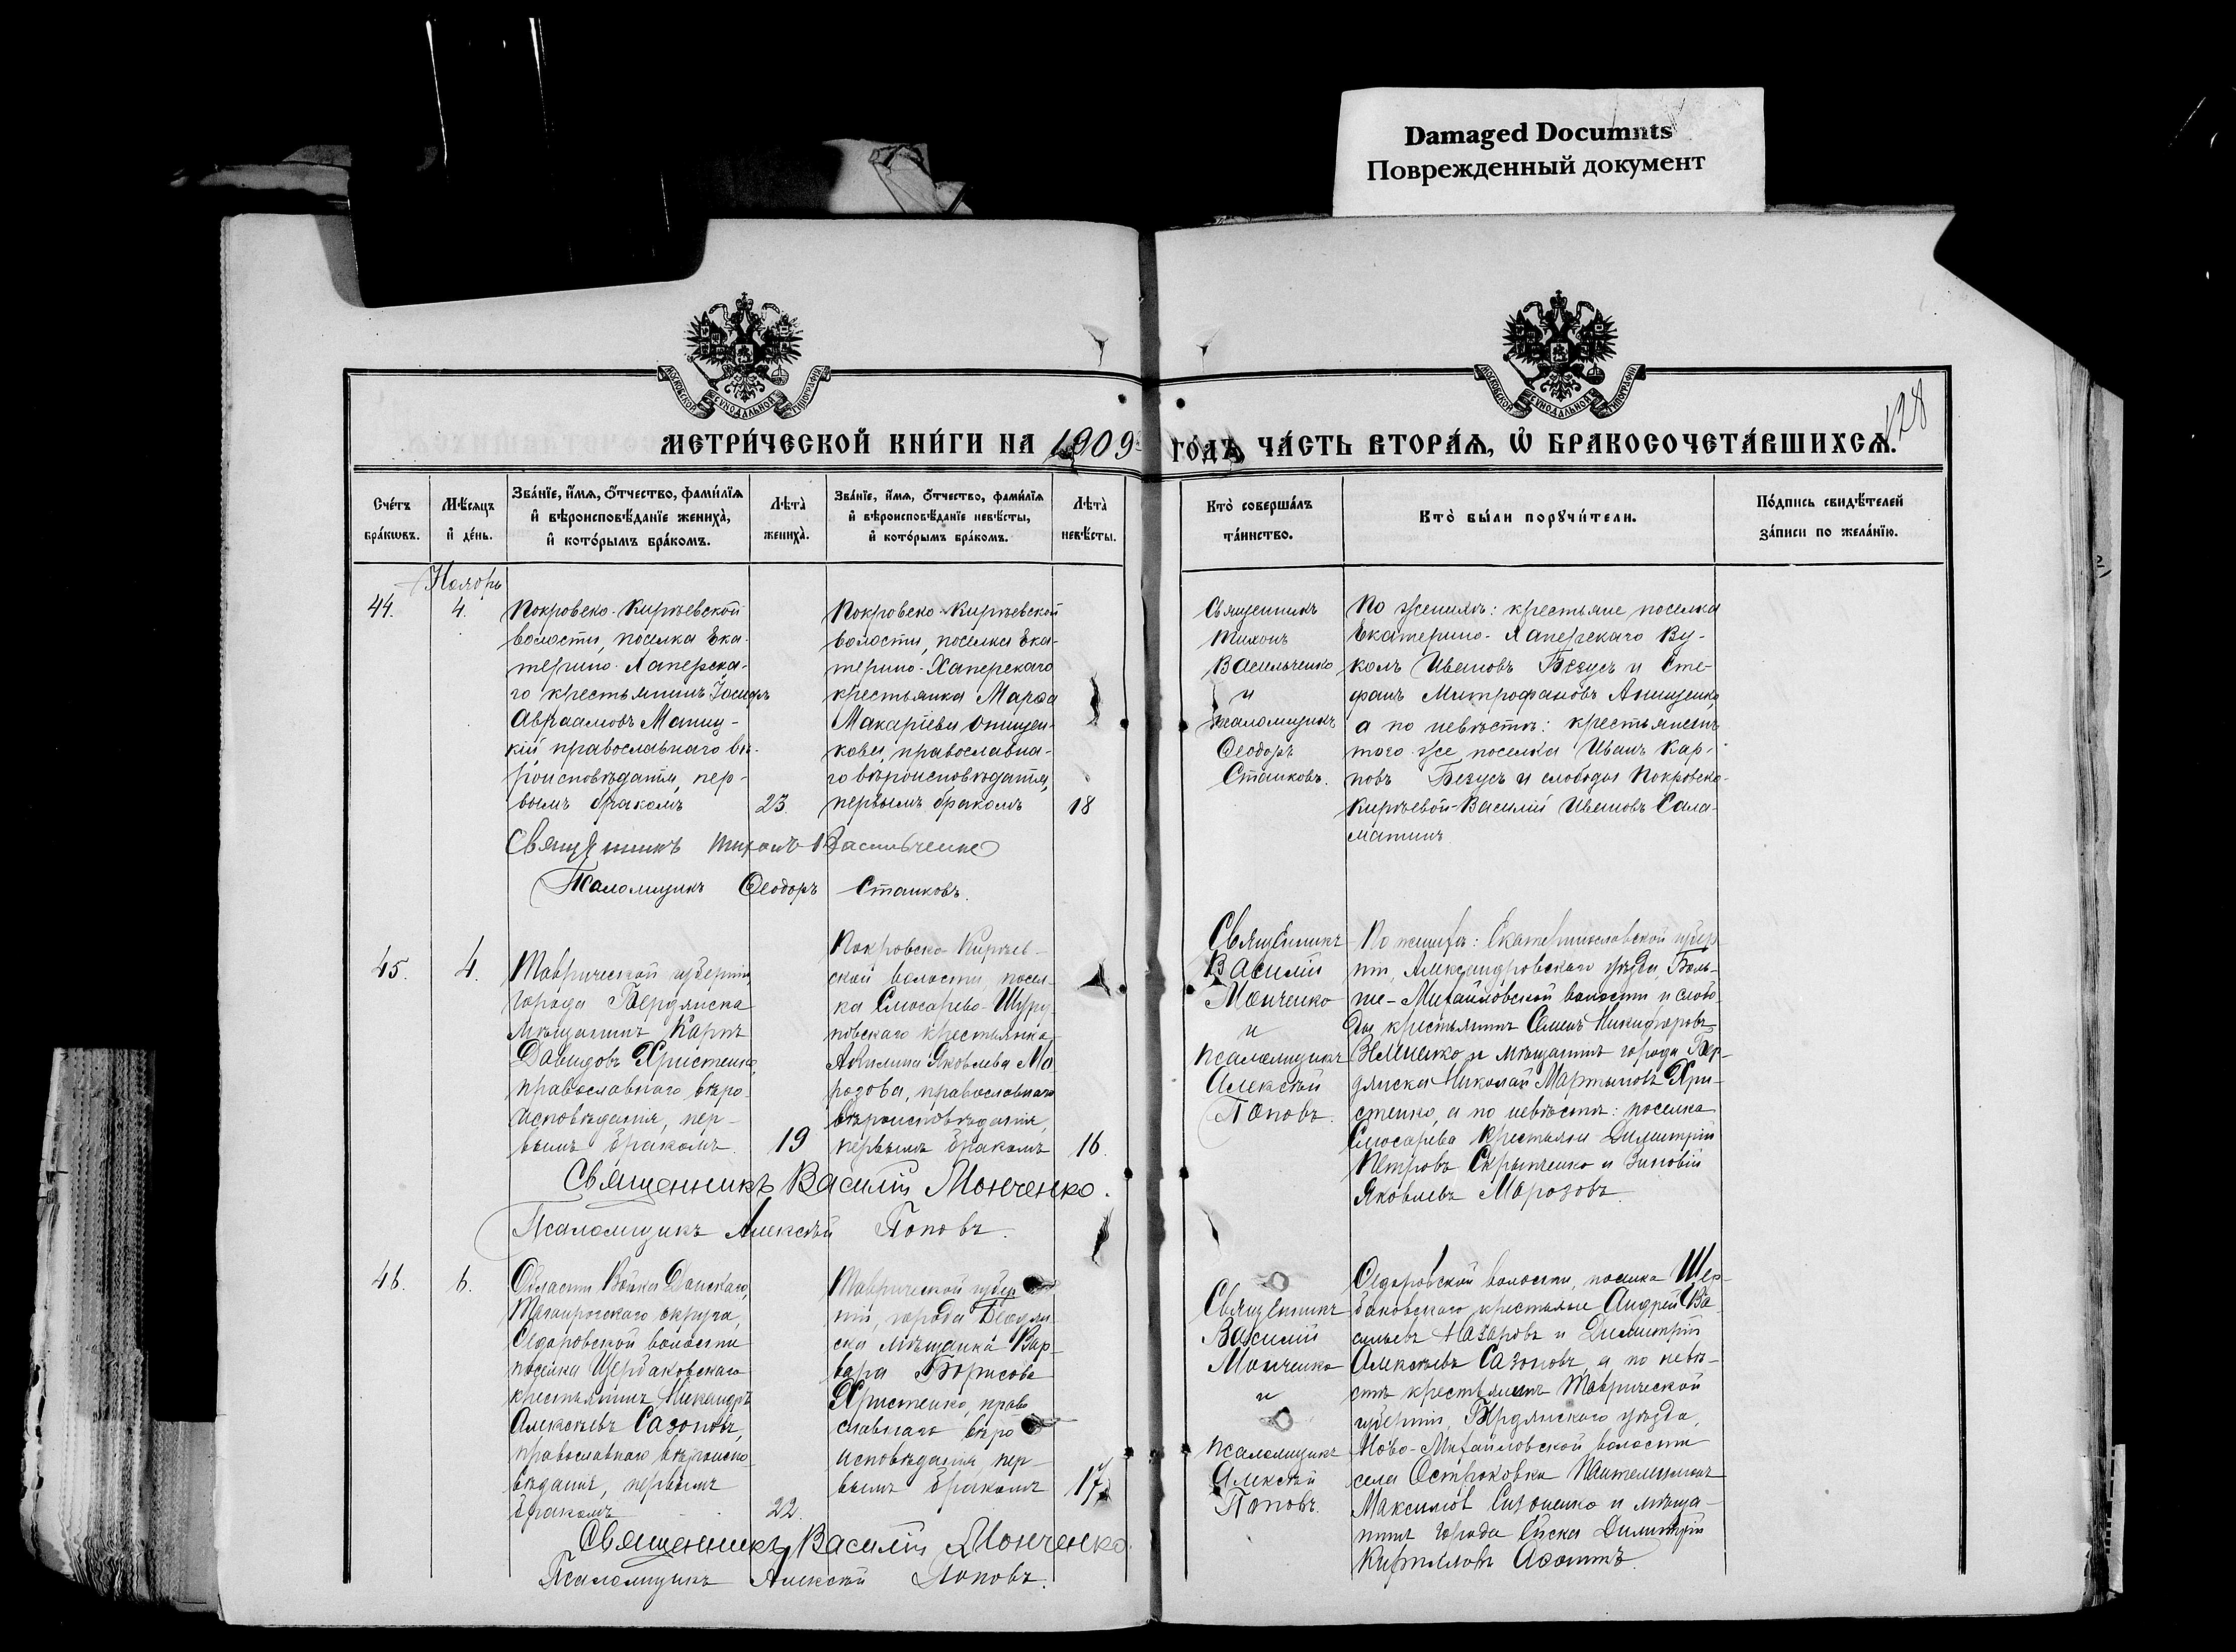 Damaged Documnts
Поврежденный документ
МОСКОВСКОЙ СѴНОДАЛЬНОЙ ТИПОГРАФІИ
МОСКОВСКОЙ СѴНОДАЛЬНОЙ ТИПОГРАФІИ
128
МЕТРИ́ЧЕСКОЙ КНИ́ГИ НА 1909 ГО́ДЪ ЧА́СТЬ ВТОРА́Ѧ, Ѽ БРАКОСОЧЕТА́ВШИХСѦ.
Сче́тъ бра́кѡвъ.
Мѣ́сѧцъ и҆ де́нь.
Зва́нїе, и҆́мѧ, ѻ҆́тчество, фами́лїѧ
и҆ вѣроисповѣ́данїе жениха̀,
и҆ кото́рымъ бра́комъ.
Лѣта̀ жениха̀.
Зва́нїе, и҆́мѧ, ѻ҆́тчество, фами́лїѧ
и҆ вѣроисповѣ́данїе невѣ́сты,
и҆ кото́рымъ бра́комъ.
Лѣта̀ невѣ́сты.
Кто̀ соверша́лъ та́инство.
Кто̀ бы́ли порꙋчи́тели.
По́дпись свидѣ́телей за́писи по жела́нїю.
Ноябрь
44.
4.
Покровско-Кирѣевской
волости, поселка Ека-
терино-Хаперска-
го крестьянинъ Іосифъ
Авраамовъ
кій, православнаго вѣ-
роисповѣданія, пер-
вымъ бракомъ
23.
Покровско-Кирѣевской
волости, поселка Ека-
терино-Хаперскаго
крестьянка Марѳа
Макаріева Онищен-
кова, православна-
го вѣроисповѣданія,
первымъ бракомъ
18
Священникъ
Тихонъ
Васильченко
и
псаломщикъ
Ѳеодоръ
Станковъ.
По женихѣ: крестьяне поселка
Екатерино-Хаперскаго Ву-
колъ Ивановъ Безусъ и Сте-
фанъ Митрофановъ Анищенко,
а по невѣстѣ: крестьянинъ
того-же поселка Иванъ Кар-
повъ Безусъ и слободы Покровско-
Кирѣевой-Василій Ивановъ Сала-
матинъ
Священникъ Тихонъ Васильченко
Псаломщикъ Ѳеодоръ Станковъ.
45.
4.
Таврической губерніи,
города Бердянска
мѣщанинъ Карпъ
Давидовъ Христенко,
православнаго вѣро-
исповѣданія, пер-
вымъ бракомъ.
19
Покровско-Кирѣев-
ской волости, посел-
ка Слюсарево-Шуру-
повскаго крестьянка
Акилина Яковлева Мо
розова, православнаго
вѣроисповѣданія,
первымъ бракомъ
16.
Священникъ
Василій
Монченко
и
псаломщикъ
Алексѣй
Поповъ.
По женихѣ: Екатеринославской губер-
ніи, Александровскаго уѣзда, Боль-
ше-Михайловской волости и слобо-
ды крестьянинъ Семенъ Никифоровъ
и мѣщанинъ города Бер-
дянска Николай Мартыновъ Хри-
стенко, а по невѣстѣ: поселка
Слюсарева крестьяне Димитрій
Петровъ Скрыпченко и Зиновій
Яковлевъ Морозовъ.
Священникъ Василій Монченко.
Псаломщикъ Алексѣй Поповъ.
46.
6.
Области Войска Донскаго,
Таганрогскаго округа,
Ѳедоровской волости
поселка Щербаковскаго
крестьянинъ Никандръ
Алексѣевъ Сазоновъ,
православнаго вѣроиспо-
вѣданія, первымъ
бракомъ
22.
Таврической губер
ніи, города Бердян
ска мѣщанка Вар-
вара Борисова
Христенко, право
славнаго вѣро
исповѣданія, пер-
вымъ бракомъ
17.
Священникъ
Василій
Монченко
и
псаломщикъ
Алексѣй
Поповъ.
Ѳедоровской волости, поселка Щер-
баковскаго крестьяне Андрей Ва-
сильевъ Назаровъ и Димитрій
Алексѣевъ Сазоновъ, а по невѣ-
стѣ крестьянинъ Таврической
губерніи, Бердянскаго уѣзда,
Ново-Михайловской волости
села Пантелимонъ
Максимов и мѣща-
нинъ города Ейска Димитрій
Кирилловъ
Священникъ Василій Монченко.
Псаломщикъ Алексѣй Поповъ.